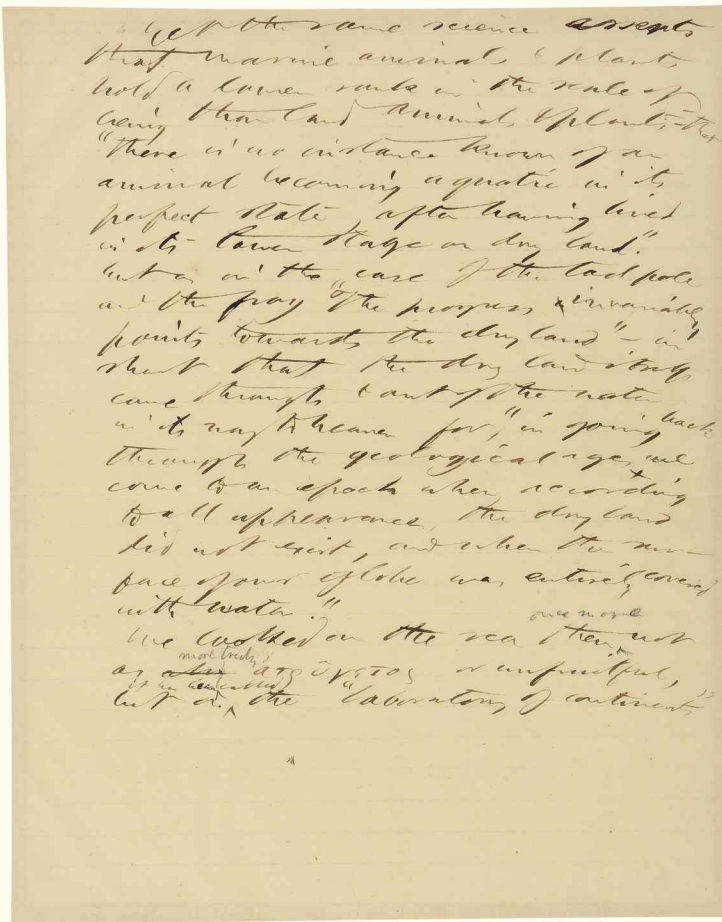 Yet the same science asserts
that marine animals & plants
hold a lower rank in the scale of
being than land animals & plants—that
"there is no instance known of an
animal becoming aquatic in its
perfect state, after having lived
in its lower stage on dry land."
but as in the case of the tadpole
and the frog "the progress invariably
points towards the dry land"—in
short that the dry land itself
came through & out of the water
in its way to heaven for, "in going back
through the geological ages, we
come to an epoch when, according
to all appearances, the dry land
did not exist, and when the sur-
face of our globe was entirely covered
with water."
once more
We looked on the sea, then, not
more truly
as ατρύγετος or unfruitful,
it has been called
but as the "laboratory of continents"